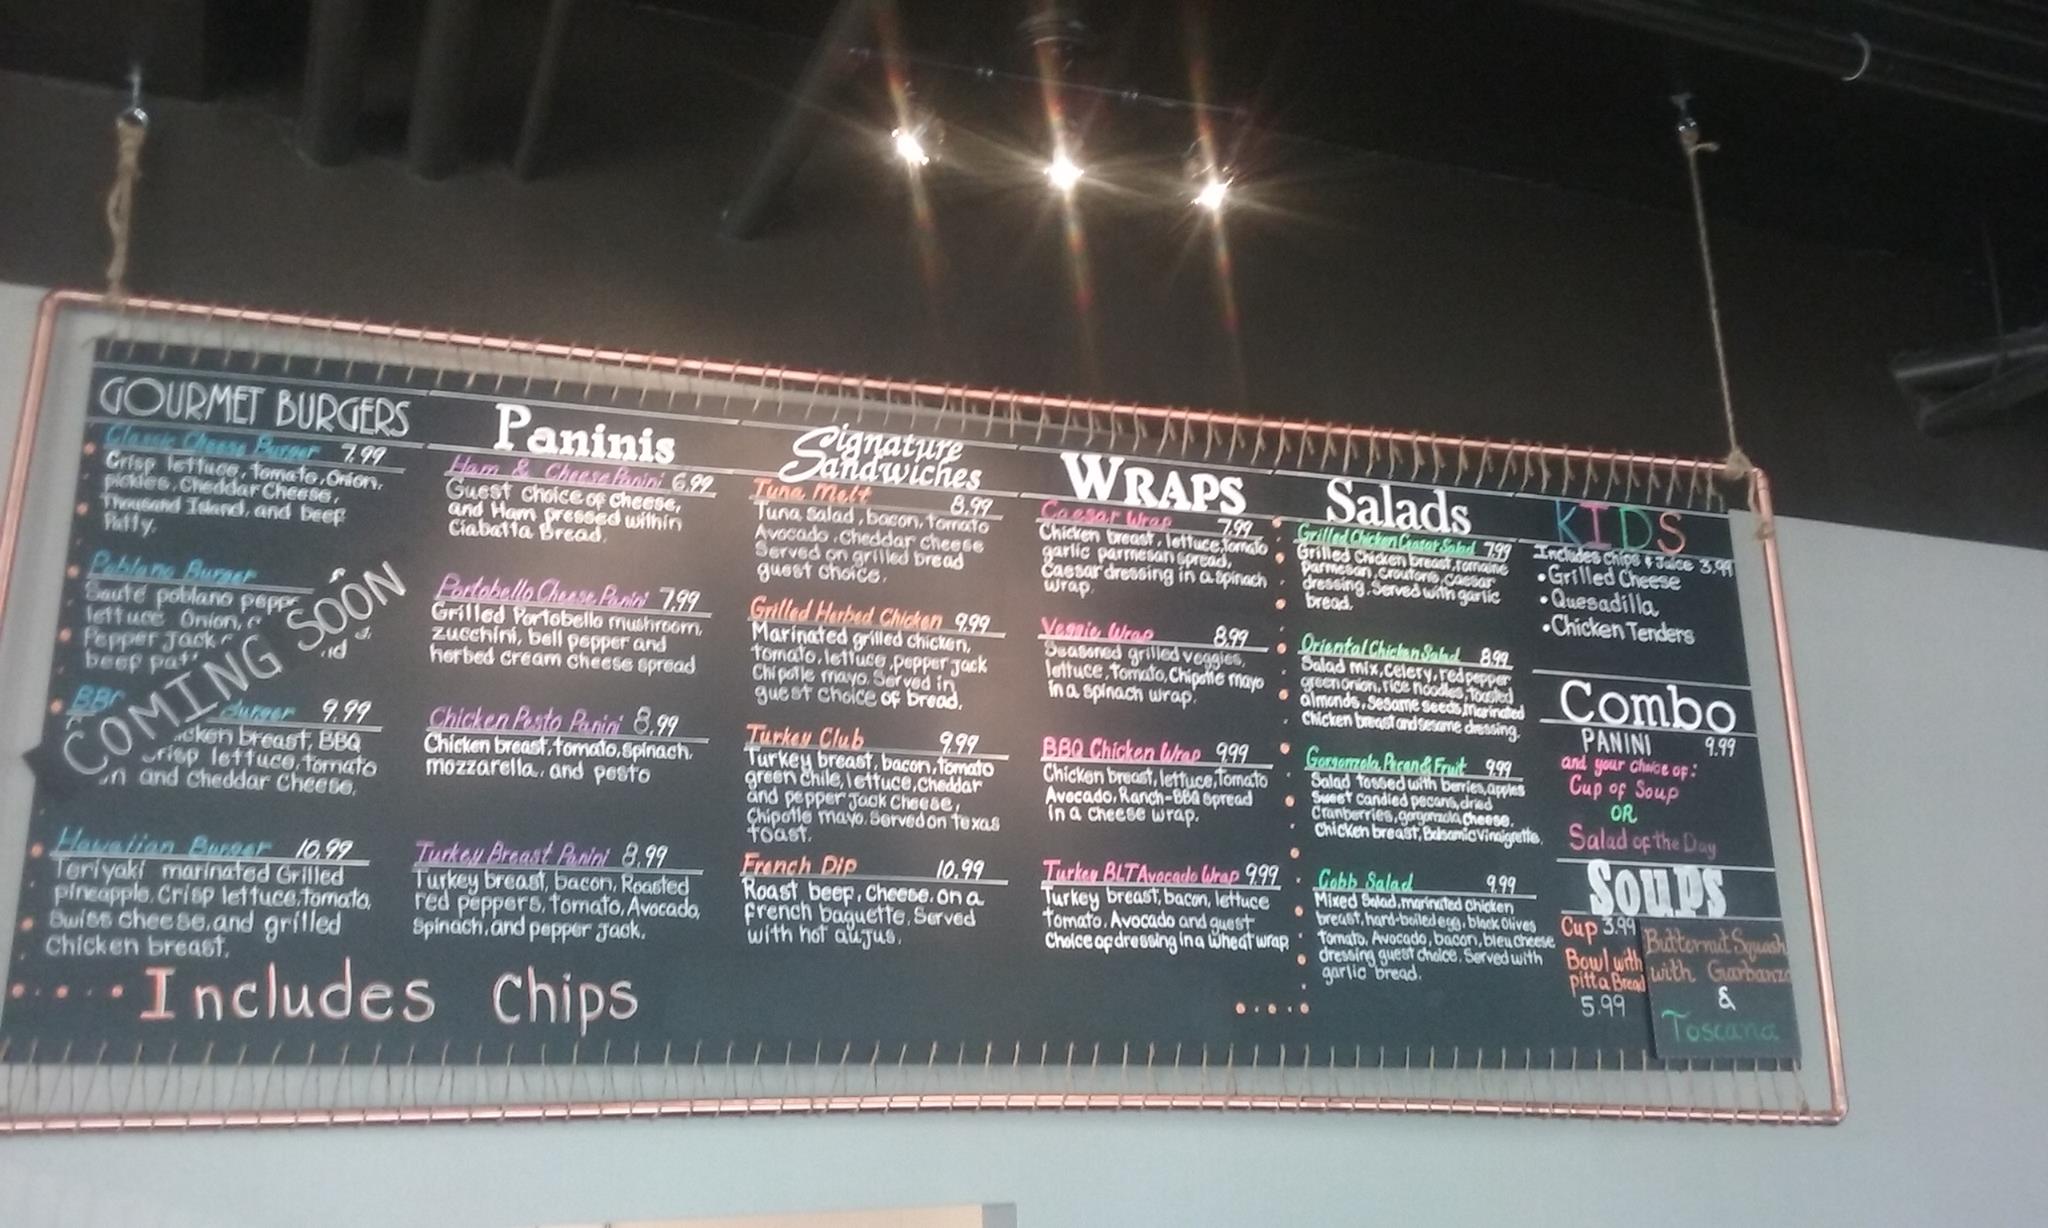 GOURMET BURGERS
Classic Cheese Burger 7.99
Crisp lettuce, Tomato, Onion,
pickles, Cheddar Cheese,
Thousand Island, and beef
Patty.
Poblano Burger
Sauté poblano
lettuce, Onion,
Pepper Jack
beef
COMING SOON
Burger 9.99
breast, BBQ
crisp lettuce, tomato
and Cheddar Cheese.
Hawaiian Burger 10.99
Teriyaki marinated Grilled
pineapple, Crisp lettuce, tomato,
Swiss cheese, and grilled
Chicken breast.
Includes Chips
Paninis
Ham & Cheese Panini 6.99
Guest choice of cheese,
and Ham pressed within
Ciabatta Bread.
Portobello Cheese Panini 7.99
Grilled Portobello mushroom,
zucchini, bell pepper and
herbed cream cheese spread
Chicken Pesto Panini 8.99
Chicken breast, tomato, spinach,
mozzarella, and pesto
Turkey Breast Panini 8.99
Turkey breast, bacon, Roasted
red peppers, tomato, Avocado,
Spinach, and pepper jack.
Signature
Sandwiches
Tuna Melt 8.99
Tuna Salad, bacon, tomato
Avocado, Cheddar cheese
Served on grilled bread
guest choice.
Grilled Herbed Chicken 9.99
Marinated grilled chicken,
tomato, lettuce, pepper jack
Chipotle mayo. Served in
guest choice of bread.
Turkey Club 9.99
Turkey breast, bacon, tomato
green chile, lettuce, cheddar
and pepper jack cheese,
Chipotle mayo. Served on Texas
Toast.
French Dip 10.99
Roast beef, Cheese, on a
french baguette. Served
with hot aujus.
WRAPS
Caesar Wrap 7.99
Chicken breast, lettuce, tomato
garlic parmesan spread,
Caesar dressing in a spinach
wrap.
Veggie Wrap 8.99
Seasoned grilled veggies,
lettuce, tomato, Chipotle mayo
in a spinach wrap.
BBQ Chicken Wrap 9.99
Chicken breast, lettuce, Tomato
Avocado, Ranch-BBQ spread
in a cheese wrap.
Turkey BLT Avocado Wrap 9.99
Turkey breast, bacon, lettuce
tomato, Avocado and guest
Choice of dressing in a wheat wrap
Salads
Grilled Chicken Ceasar Salad 7.99
Grilled Chicken breast, romaine
Parmesan, croutons, caesar
dressing. Served with garlic
bread.
Oriental Chicken Salad 8.99
Salad mix, celery, red pepper
green onion, rice noodles, toasted
almonds, sesame seeds, marinated
Chicken breast and sesame dressing.
Gorgonzola, Pecan & Fruit 9.99
Salad tossed with berries, apples
Sweet candied pecans, dried
Cranberries, gorgonzola cheese,
Chicken breast, Balsamic Vinaigrette.
Cobb Salad 9.99
Mixed Salad, marinated chicken
breast, hard-boiled egg, black olives
tomato, Avocado, bacon, bleu cheese
dressing guest choice. Served with
garlic bread.
KIDS
Includes chips & juice 3.99
•Grilled Cheese
•Quesadilla
•Chicken Tenders
Combo
PANINI 9.99
and your choice of:
Cup of Soup
OR
Salad of the Day
Soups
Cup 3.99
Bowl with
pitta Bread
5.99
Butternut Squash
with Garbanzo
&
Toscana